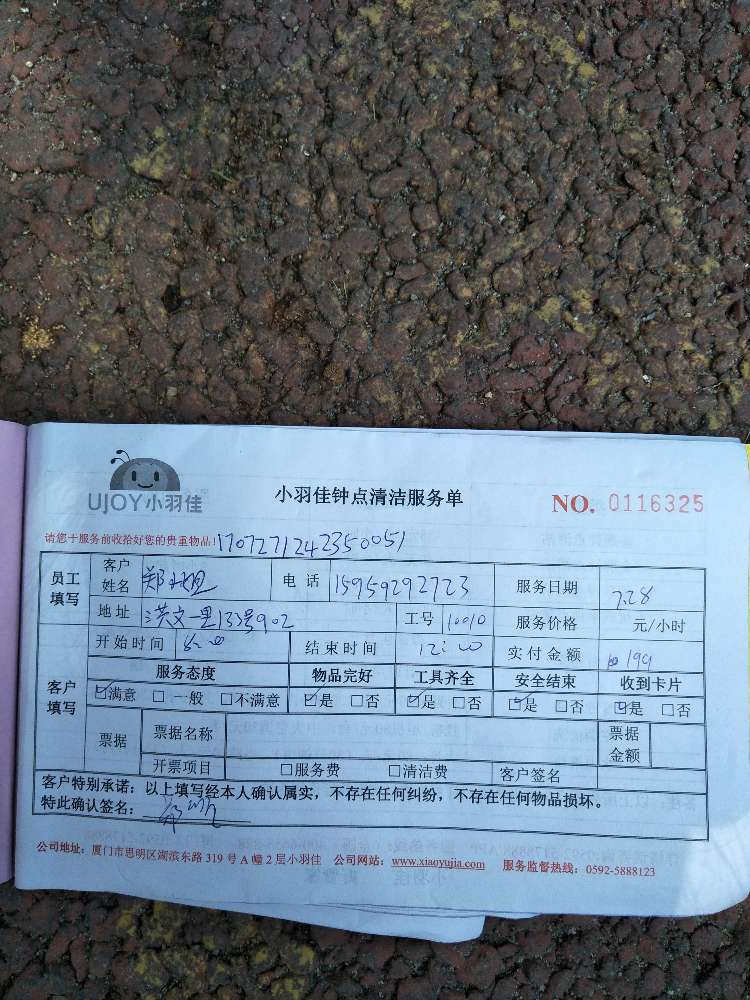 UJOY小羽佳
小羽佳钟点清洁服务单
NO. 0116325
请您于服务前收拾好您的贵重物品! 1707271242350051
员工填写 客户姓名 郑小姐 电话 15959292723 服务日期 7.28
地址 洪文一里133号902 工号 10010 服务价格 元/小时
客户填写 开始时间 8:00 结束时间 12:00 实付金额 199
服务态度 物品完好 工具齐全 安全结束 收到卡片
☑满意 □一般 □不满意 ☑是 □否 ☑是 □否 ☑是 □否 ☑是 □否
票据 票据名称 票据金额
开票项目 □服务费 □清洁费 客户签名
客户特别承诺：以上填写经本人确认属实，不存在任何纠纷，不存在任何物品损坏。
特此确认签名：
公司地址：厦门市思明区湖滨东路 319 号 A 幢 2 层小羽佳 公司网站：www.xiaoyujia.com 服务监督热线：0592-5888123